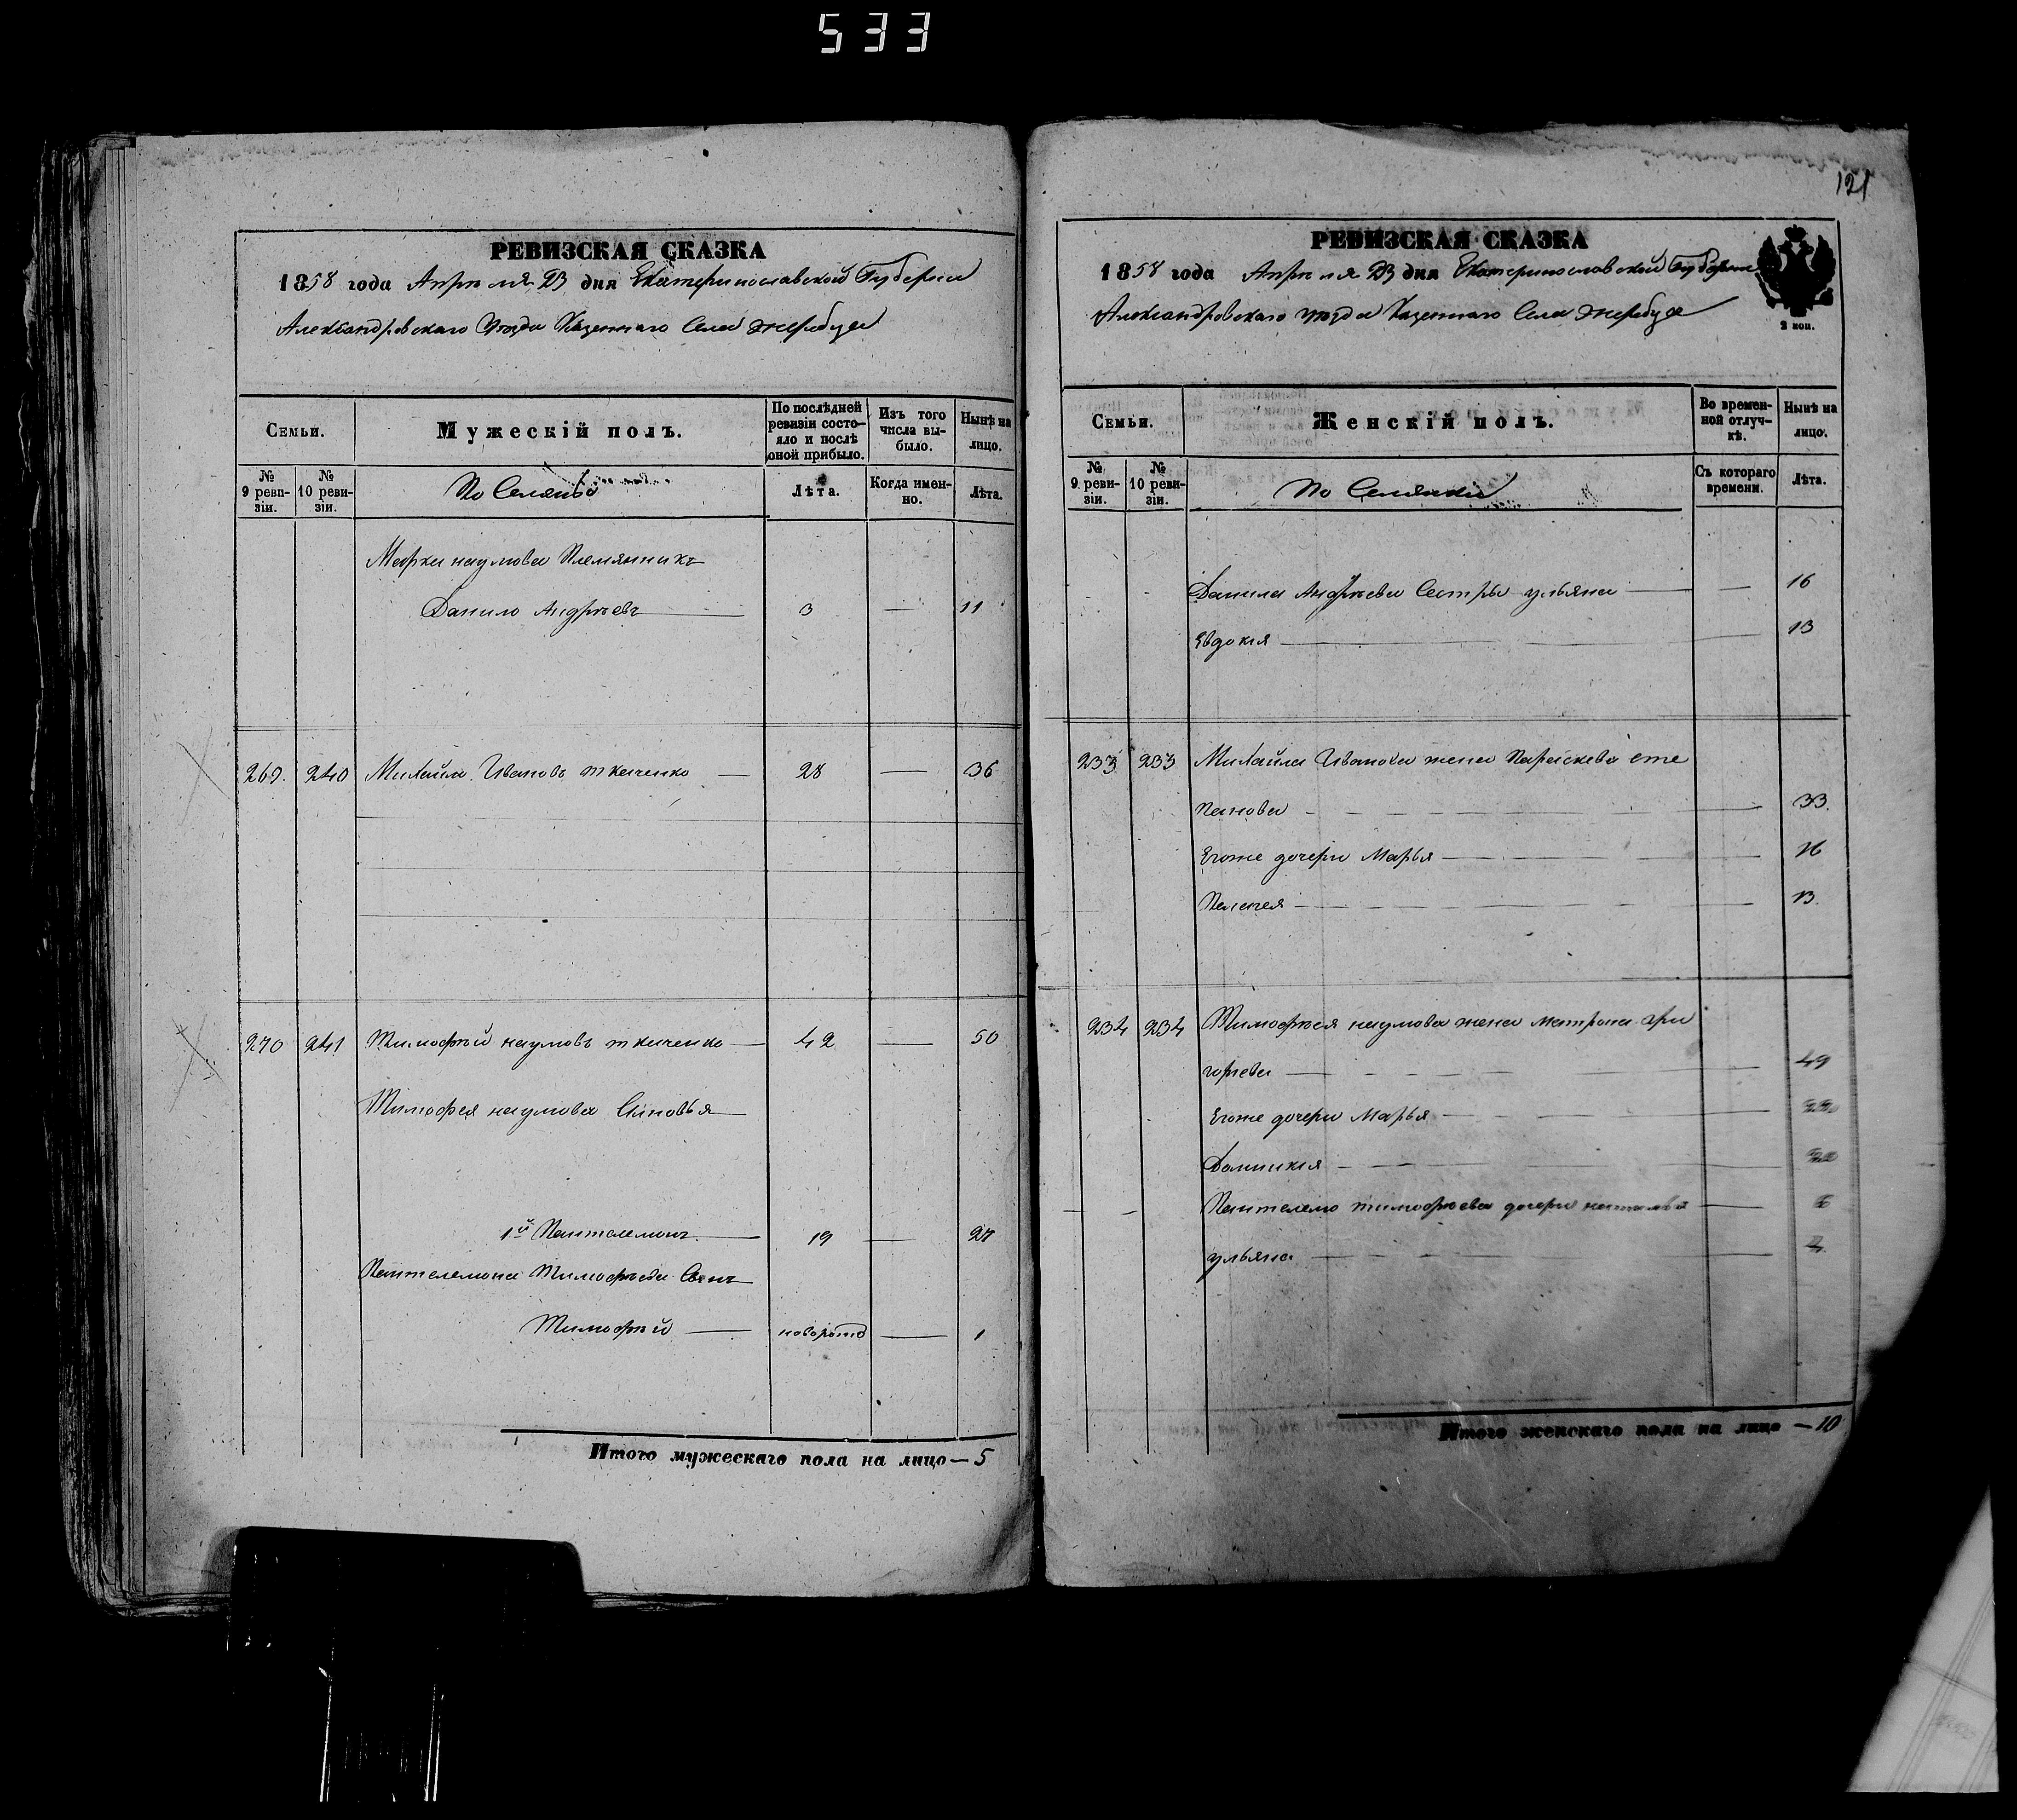 533
РЕВИЗСКАЯ СКАЗКА
1858 года Апрѣля 23 дня Екатеринославской Губерніи
Александровскаго Уѣзда Казеннаго Села Жеребца
Семьи.
Мужескій полъ.
По послѣдней ревизіи состояло и послѣ оной прибыло.
Изъ того числа выбыло.
Нынѣ на лицо.
№ 9 ревизіи.
№ 10 ревизіи.
Лѣта.
Когда именно.
Лѣта.
Марка наумова Племянникъ
Данило Андрѣевъ 3 — 11
269. 240 Михайла Ивановъ ткаченко — 28 — 36
270 241 Тимофѣй наумовъ ткаченко — 42 — 50
Тимофея наумова Сыновья
1й Пантелемонъ — 19 — 27
Пантелемона Тимофѣева Сынъ
Тимофѣй — новорожд — 1
Итого мужескаго пола на лицо — 5
121
РЕВИЗСКАЯ СКАЗКА
1858 года Апрѣля 23 дня Екатеринославской Губерніи
Александровскаго уѣзда Казеннаго Села Жеребца
2 коп.
Семьи.
Женскій полъ.
Во временной отлучкѣ.
Нынѣ на лицо.
№ 9 ревизіи.
№ 10 ревизіи.
Съ котораго времени.
Лѣта.
Данила Андрѣева Сестры ульяна — — 16
Евдокія — — 13
233 233 Михайла Иванова жена Параскева сте
панова — — 33.
Егоже дочери Марья — — 16
Пелагея — — 13.
234 234 Тимофѣя наумова жена матрона гри
горьева — — 49
Егоже дочери Марья —
Домникія —
Пантелемо тимофѣева дочери наталья — 6
ульяна —
Итого женскаго пола на лицо — 10